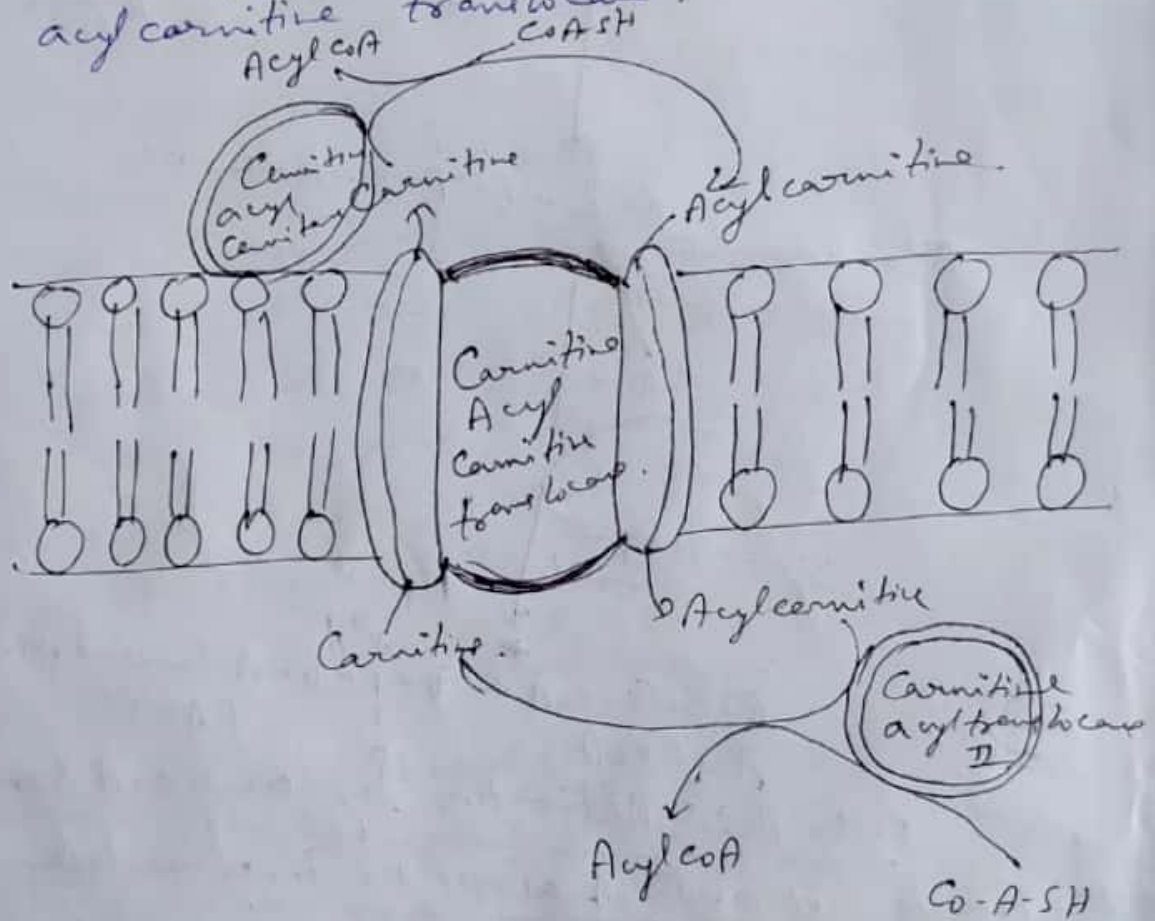 acylcarnitine
Acyl CoA
CoASH
acyl
Carnitine
Acylcarnitine.
Carnitine
Acyl
Carnitine
translocase.
Carnitine.
Acylcarnitine
Carnitine
acyltranslocase
II
Acyl CoA
Co-A-SH